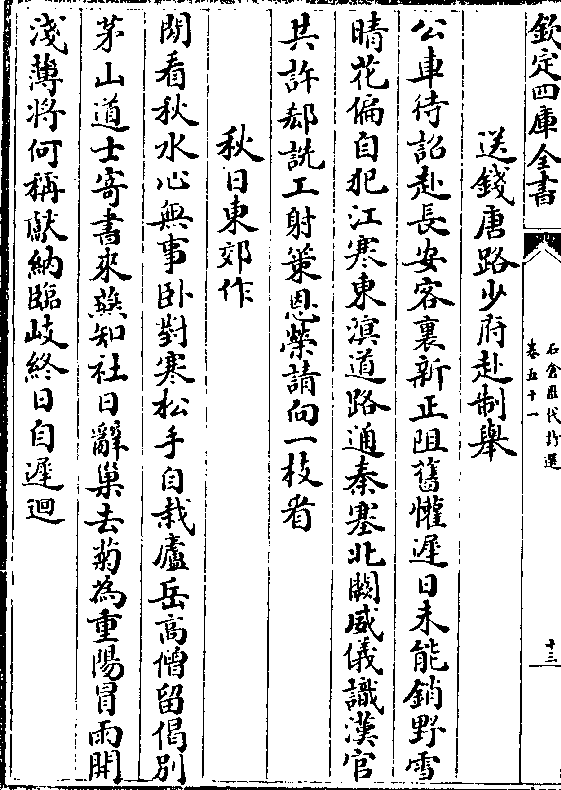 欽定四庫全書
石倉歷代詩選
卷五十一
十三
送錢唐路少府赴制舉
公車待詔赴長安客裏新正阻舊懽遲日未能銷野雪
晴花偏自犯江寒東溟道路通秦塞北闕威儀識漢官
共許郄詵工射策恩榮請向一枝看
秋日東郊作
閒看秋水心無事卧對寒松手自栽廬岳高僧留偈别
茅山道士寄書來燕知社日辭巢去菊為重陽冒雨開
淺薄將何稱獻納臨岐終日自遲迴